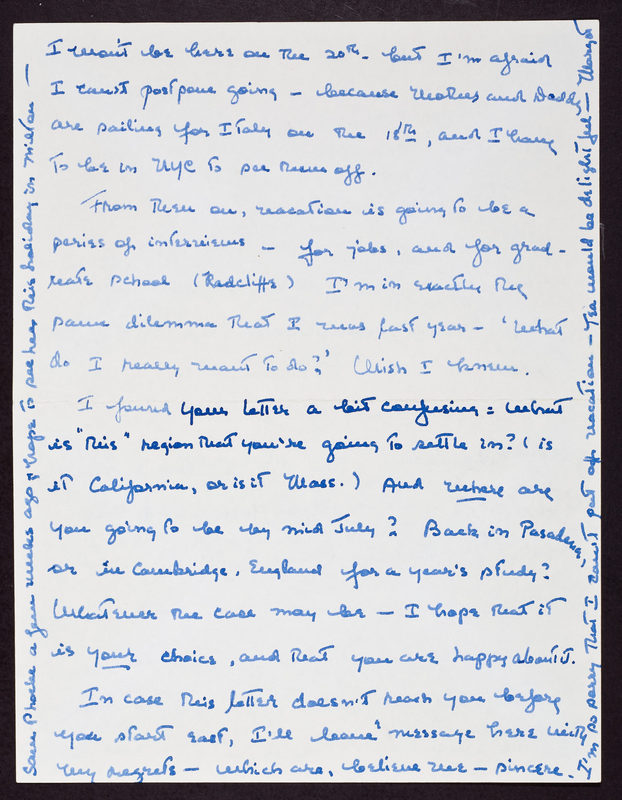 I won't be here on the 20th - but I'm afraid
I can't postpone going - because Mother and Daddy
are sailing for Italy on the 18th, and I have
to be in NYC to see them off.
From then on, vacation is going to be a
series of interviews - for jobs, and for grad-
uate school (Radcliffe) I'm in exactly the
same dilemma that I was last year - 'What
do I really want to do?' Wish I knew.
I found your letter a bit confusing: what
is "this" region that you're going to settle in? (is
it California, or is it Mass.) And where are
you going to be by mid July? Back in Pasadena,
or in Cambridge, England for a year's study?
Whatever the case may be - I hope that it
is your choice, and that you are happy about it.
In case this letter doesn't reach you before
you start east, I'll leave message here with
my regrets - which are, believe me - sincere.
I'm so sorry that I can't put off vacation - Tea would be delightful - Margot
Saw Phoebe a few weeks ago & hope to see her this holiday in Milton -